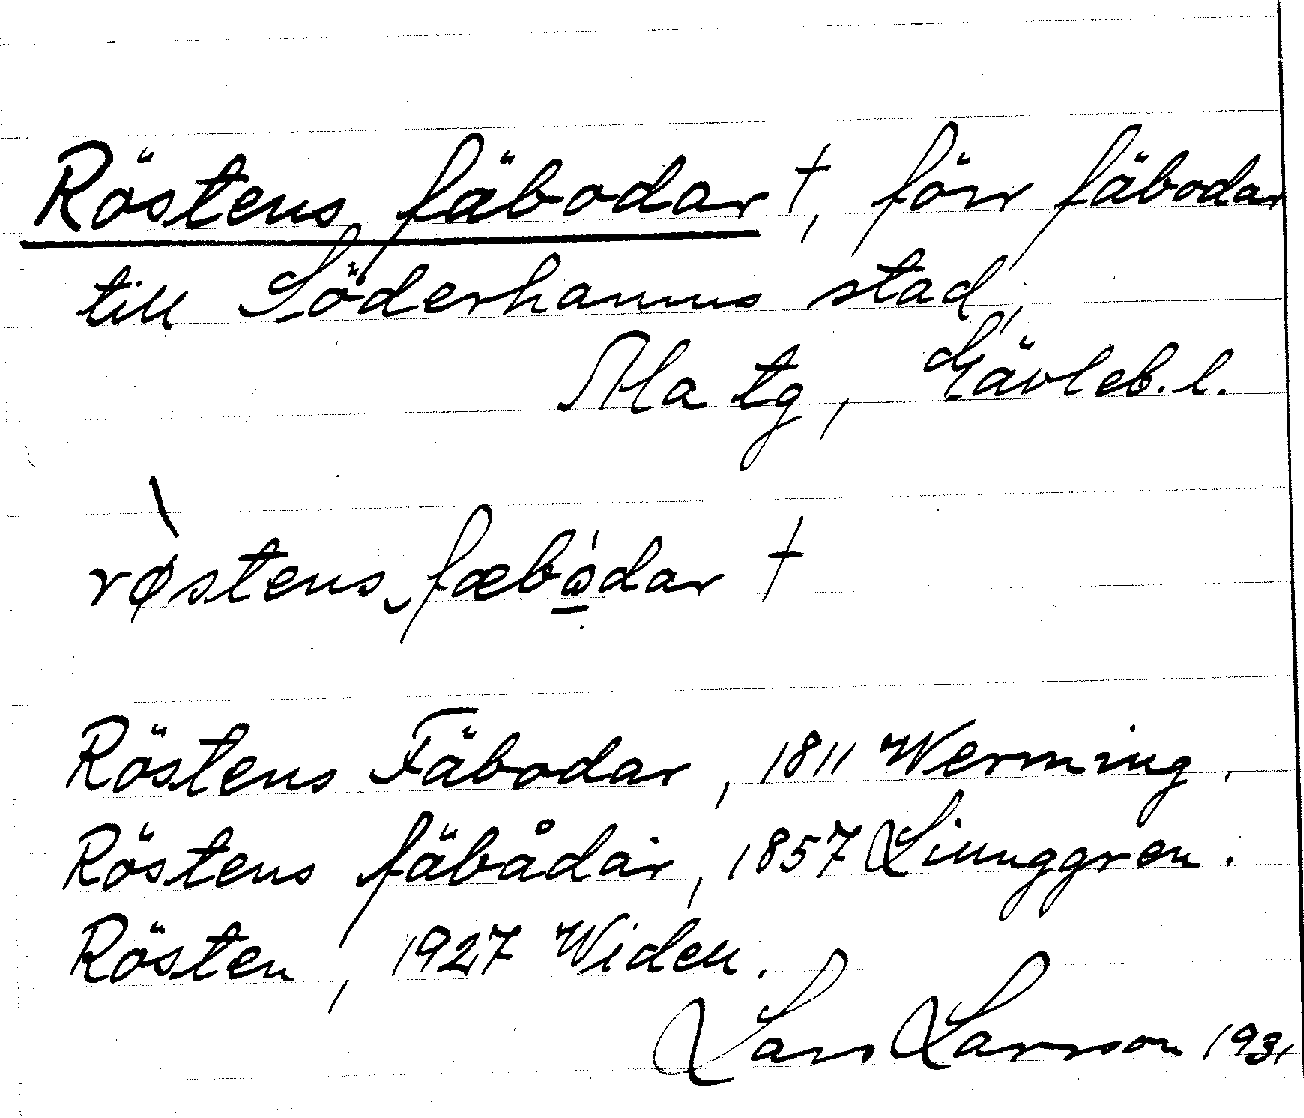 Röstens fäbodar †, förr fäbodar
till Söderhamns stad,
Ala tg, Gävleb. l.
rø̀stens‿fæbò̲dar †
Röstens Fäbodar, 1811 Werming.
Röstens fäbådar, 1857 Liunggren.
Rösten, 1927 Widen.
Lars Larsson 1931